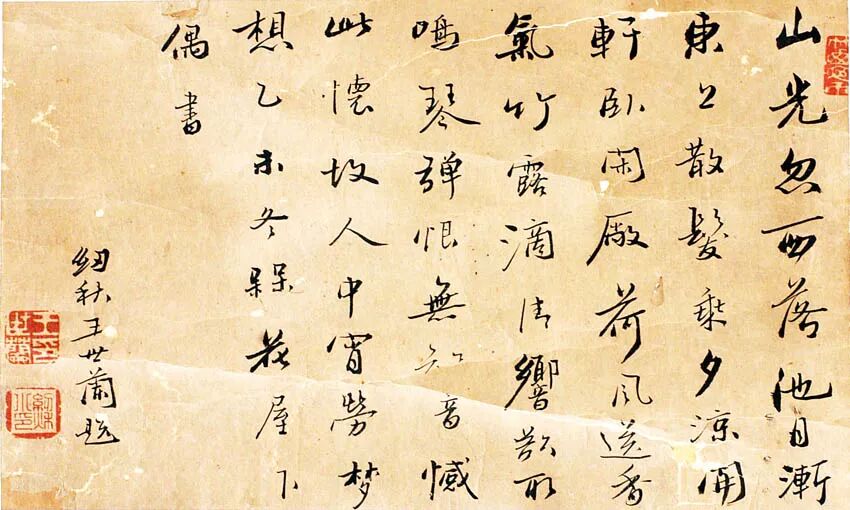 山光忽西落池月漸
東上散髮乘夕涼開
軒臥閑廠荷風送香
氣竹露滴清響欲取
鳴琴彈恨無知音憾
此懷故人中宵勞梦
想乙未冬槑花屋下
偶書
紉秋王世蘭題